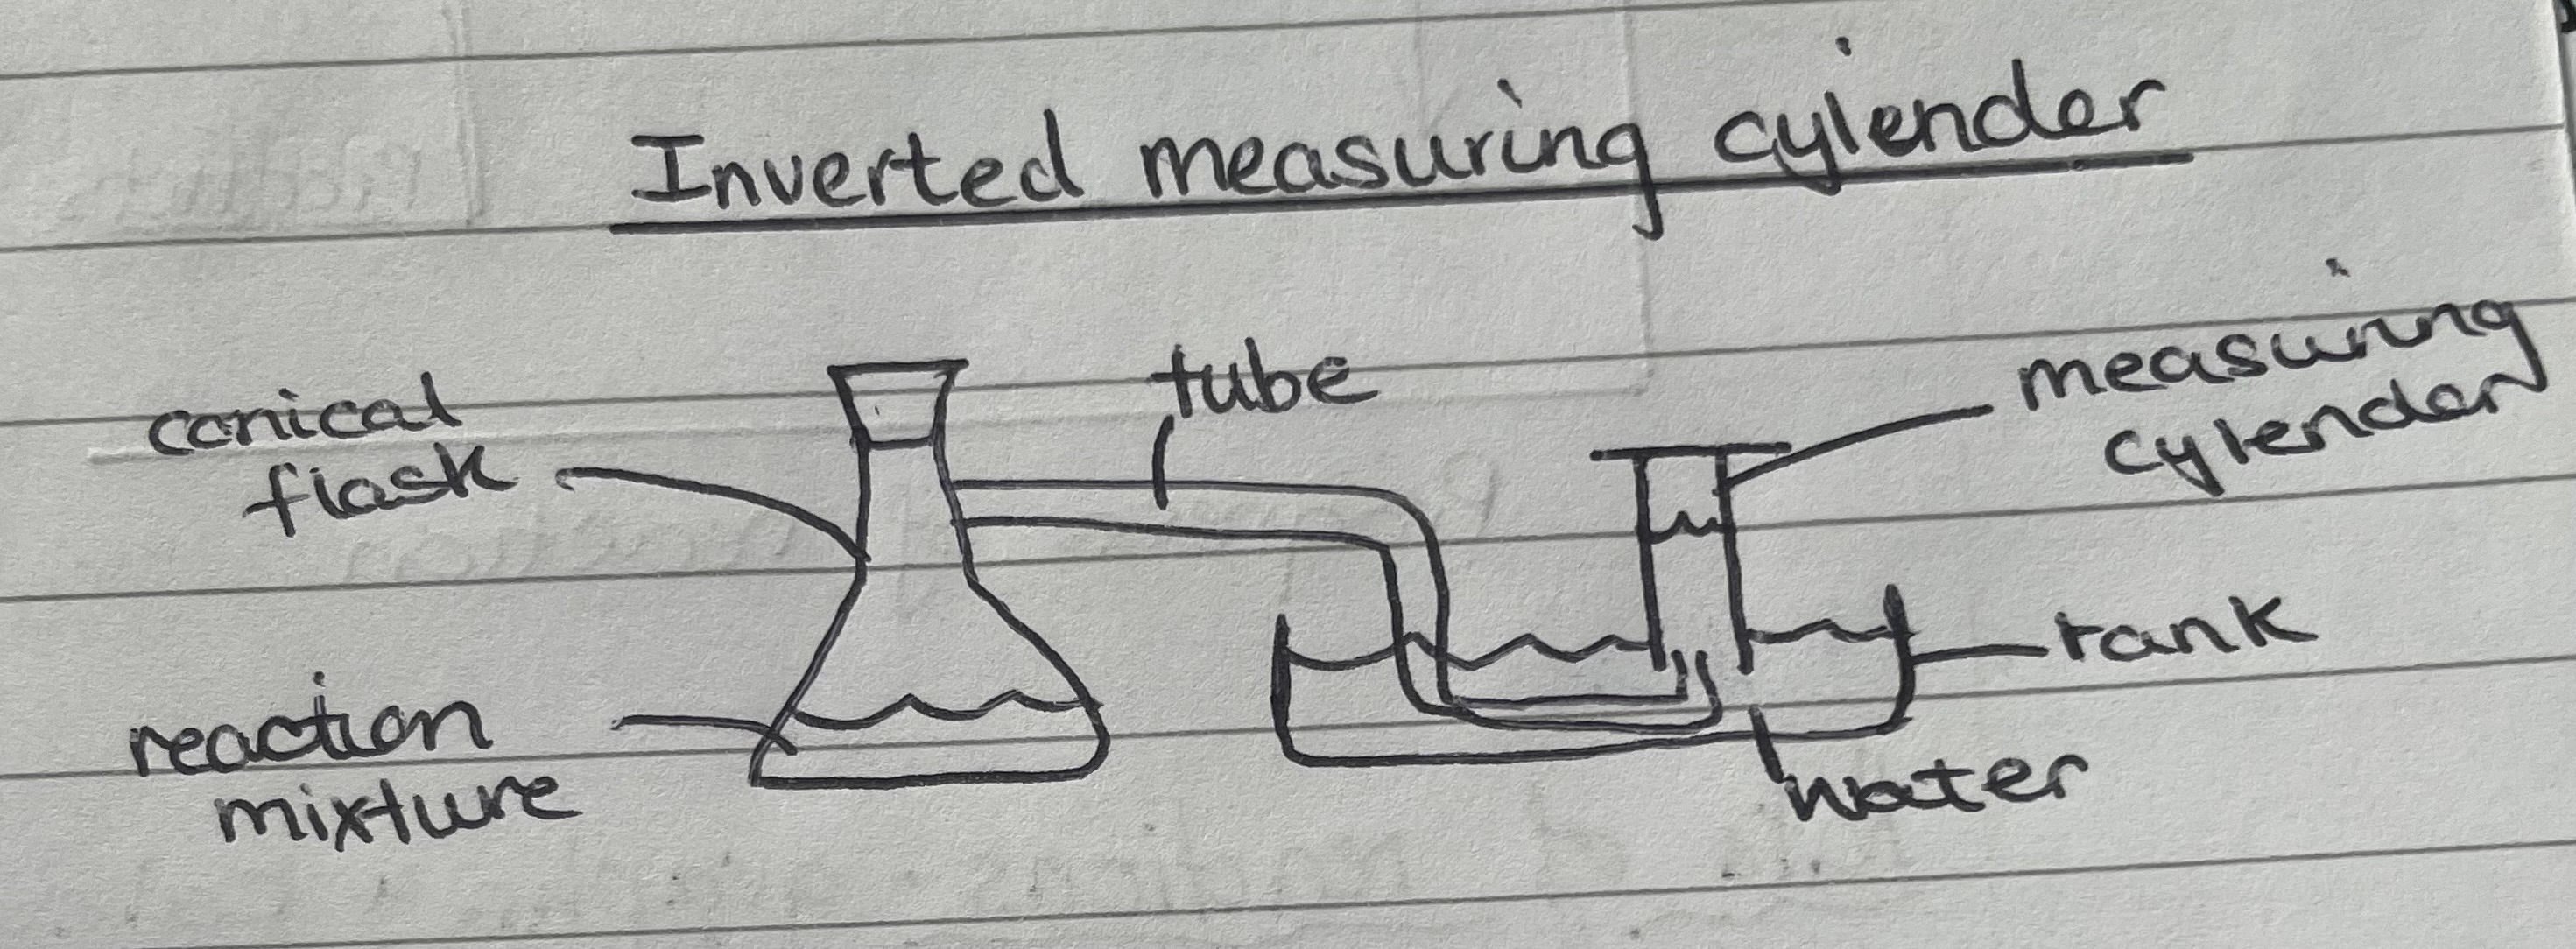 Inverted measuring cylender
conical
flask
tube
measuring
cylender
reaction
mixture
tank
water